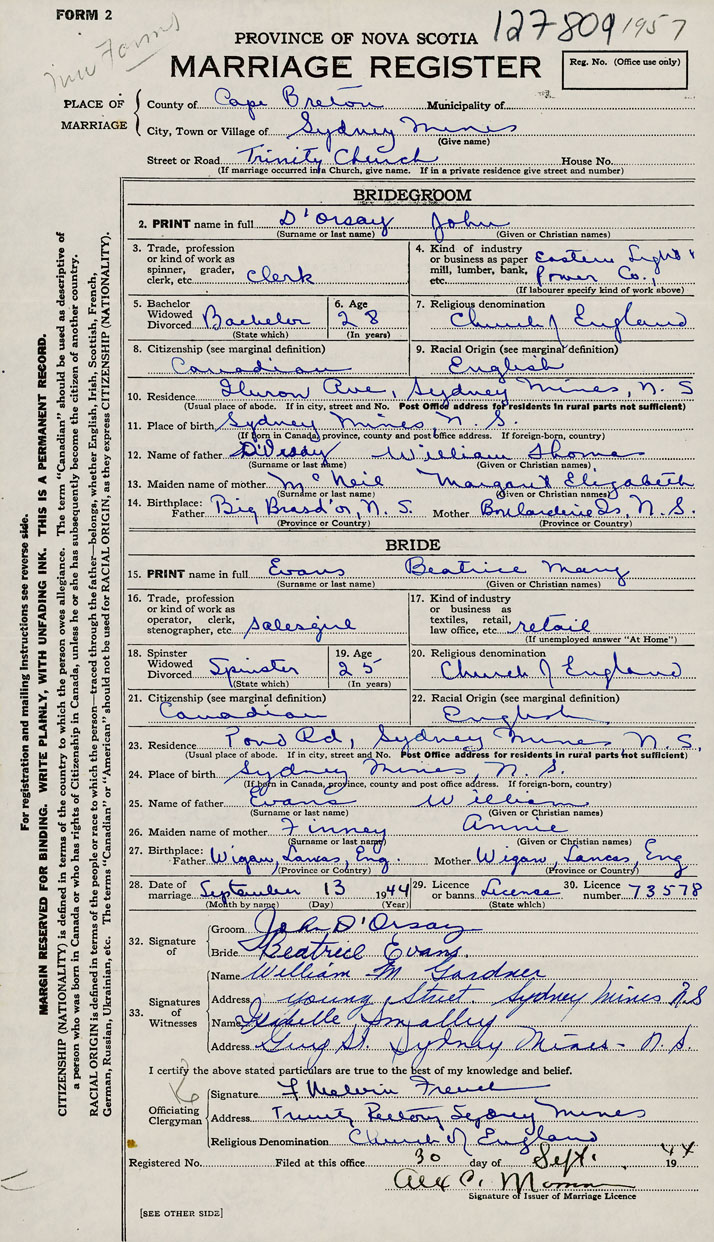 FORM 2
127809 1957
PROVINCE OF NOVA SCOTIA
MARRIAGE REGISTER
Reg. No. (Office use only)
PLACE OF MARRIAGE
County of Cape Breton Municipality of
City, Town or Village of Sydney Mines
(Give name)
Street or Road Trinity Church House No.
(If marriage occurred in a Church, give name. If in a private residence give street and number)
BRIDEGROOM
2. PRINT name in full D'Orsay John
(Surname or last name) (Given or Christian names)
3. Trade, profession or kind of work as spinner, grader, clerk, etc. Clerk
4. Kind of industry or business as paper mill, lumber, bank, etc. Eastern Light & Power Co.,
(If labourer specify kind of work above)
5. Bachelor Widowed Divorced Bachelor
(State which)
6. Age 28
(In years)
7. Religious denomination
Church of England
8. Citizenship (see marginal definition)
Canadian
9. Racial Origin (see marginal definition)
English
10. Residence Huron Ave, Sydney Mines, N. S
(Usual place of abode. If in city, street and No. Post Office address for residents in rural parts not sufficient)
11. Place of birth Sydney Mines, N. S.
(If born in Canada, province, county and post office address. If foreign-born, country)
12. Name of father D'Orsay William Thomas
(Surname or last name) (Given or Christian names)
13. Maiden name of mother McNeil Margaret Elizabeth
(Surname or last name) (Given or Christian names)
14. Birthplace: Father Big Bras d'or, N. S. Mother Boularderie Is, N. S.
(Province or Country) (Province or Country)
BRIDE
15. PRINT name in full Evans Beatrice Mary
(Surname or last name) (Given or Christian names)
16. Trade, profession or kind of work as operator, clerk, stenographer, etc. salesgirl
17. Kind of industry or business as textiles, retail, law office, etc. retail
(If unemployed answer "At Home")
18. Spinster Widowed Divorced Spinster
(State which)
19. Age 25
(In years)
20. Religious denomination
Church of England
21. Citizenship (see marginal definition)
Canadian
22. Racial Origin (see marginal definition)
English
23. Residence Pond Rd, Sydney Mines N. S.
(Usual place of abode. If in city, street and No. Post Office address for residents in rural parts not sufficient)
24. Place of birth Sydney Mines, N. S.
(If born in Canada, province, county and post office address. If foreign-born, country)
25. Name of father Evans William
(Surname or last name) (Given or Christian names)
26. Maiden name of mother Finney Annie
(Surname or last name) (Given or Christian names)
27. Birthplace: Father Wigan, Lancas, Eng. Mother Wigan, Lancas, Eng
(Province or Country) (Province or Country)
28. Date of marriage September 13 1944
(Month by name) (Day) (Year)
29. Licence or banns License
(State which)
30. Licence number 73578
32. Signature of
Groom John D'Orsay
Bride Beatrice Evans.
33. Signatures of Witnesses
Name William M Gardner
Address Young Street. Sydney Mines N S
Name Smalley
Address St. Sydney Mines - N. S.
I certify the above stated particulars are true to the best of my knowledge and belief.
Officiating Clergyman
Signature F Melvin French
Address Trinity Rectory Sydney Mines
Religious Denomination Church of England
Registered No. Filed at this office 30 day of Sept. 1944
Signature of Issuer of Marriage Licence
[SEE OTHER SIDE]
For registration and mailing instructions see reverse side.
MARGIN RESERVED FOR BINDING. WRITE PLAINLY, WITH UNFADING INK. THIS IS A PERMANENT RECORD.
CITIZENSHIP (NATIONALITY) is defined in terms of the country to which the person owes allegiance. The term "Canadian" should be used as descriptive of
a person who was born in Canada or who has rights of Citizenship in Canada, unless he or she has subsequently become the citizen of another country.
RACIAL ORIGIN is defined in terms of the people or race to which the person—traced through the father—belongs, whether English, Irish, Scottish, French,
German, Russian, Ukrainian, etc. The terms "Canadian" or "American" should not be used for RACIAL ORIGIN, as they express CITIZENSHIP (NATIONALITY).